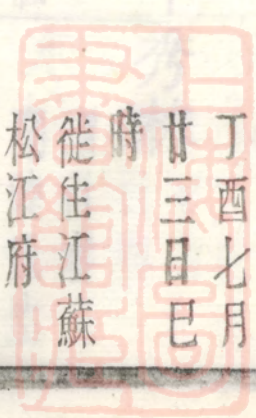 丁酉七月
廿三日巳
時
徙住江蘇
松江府